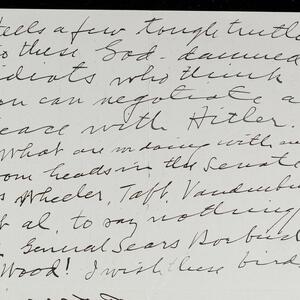 tells a few tough truths
to these God-damned
idiots who think
you can negotiate a
peace with Hitler.
What are we doing with
heads in the Senate
Wheeler, Taft, Vandenburg
et al, to say nothing
General Sears
Wood! I wish these birds